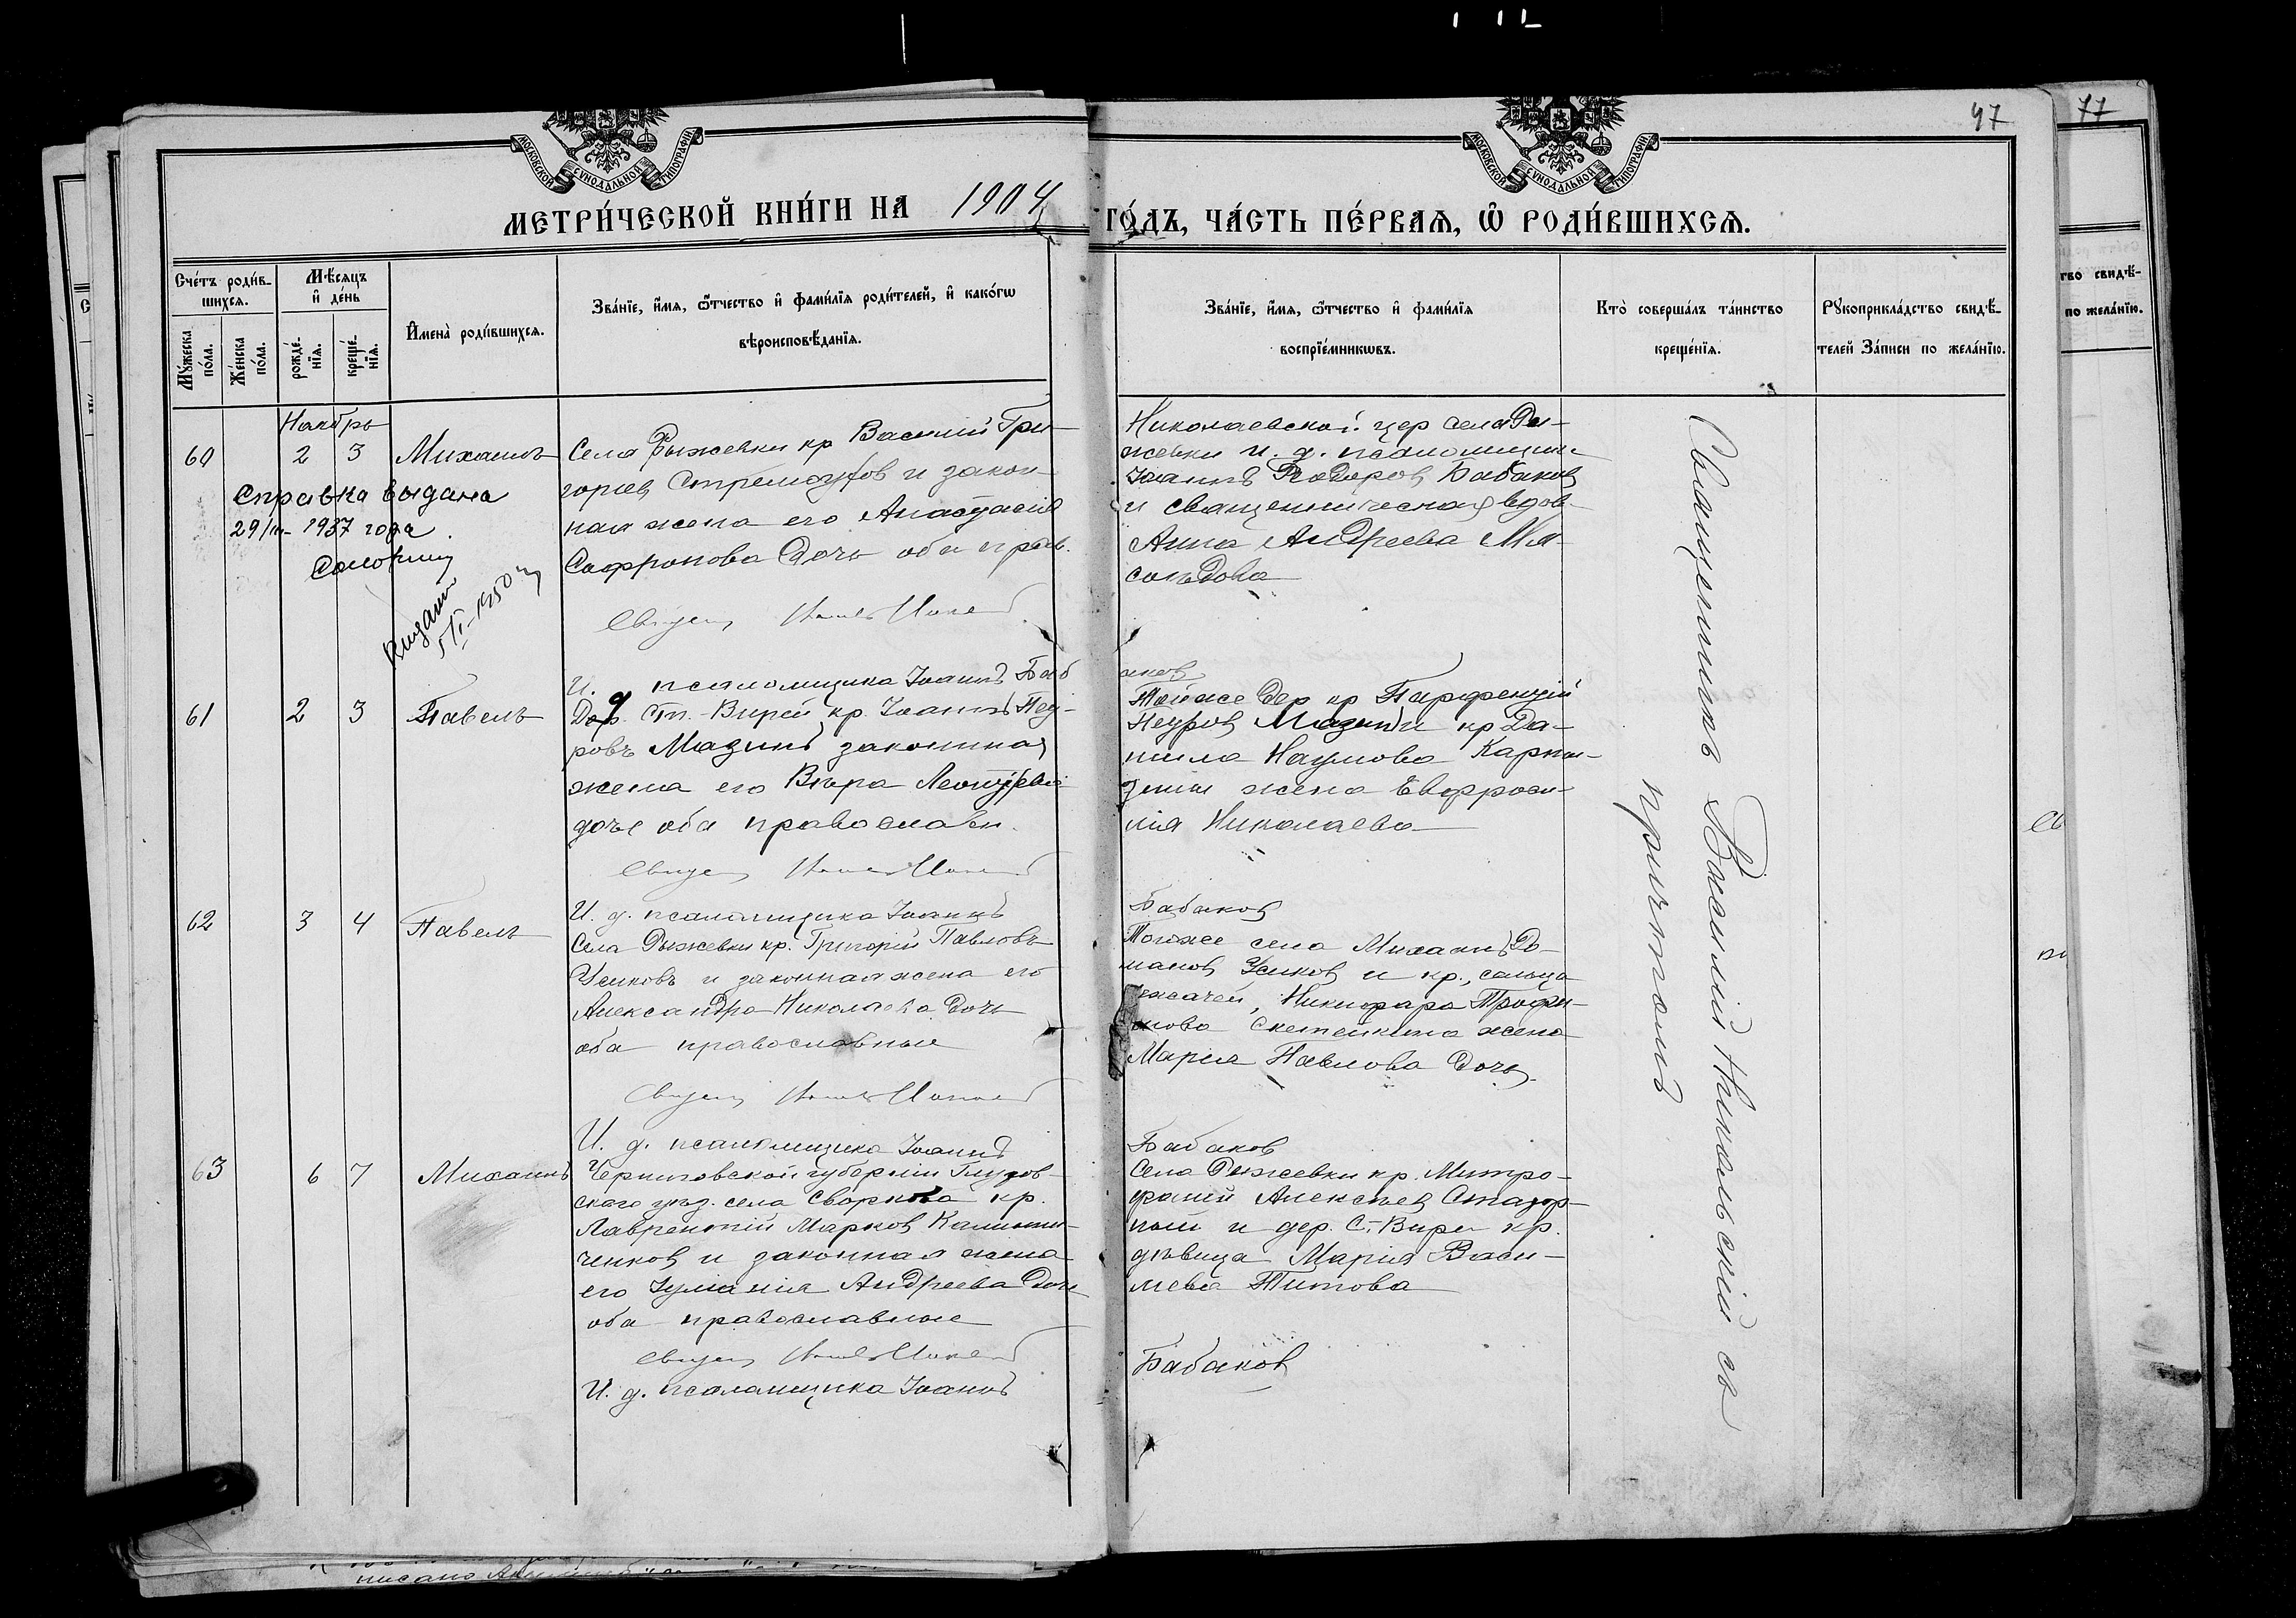 47
77
МОСКОВСКОЙ СѴНОДАЛЬНОЙ ТИПОГРАФІИ
МОСКОВСКОЙ СѴНОДАЛЬНОЙ ТИПОГРАФІИ
МЕТРИ́ЧЕСКОЙ КНИ́ГИ НА 1904 ГО́ДЪ, ЧА́СТЬ ПЕ́РВАѦ, Ѡ РОДИ́ВШИХСѦ.
Сче́тъ роди́в-
шихся.
Мꙋ́жеска
по́ла.
Же́нска
по́ла.
Мѣ́сяцъ
и҆ де́нь
рожде́-
нїя.
креще́-
нїя.
И҆мена̀ роди́вшихся.
Зва́нїе, и҆́мя, ѻ҆́тчество и҆ фами́лїя роди́телей, и҆ како́гѡ
вѣроисповѣ́данїя.
Зва́нїе, и҆́мя, ѻ҆́тчество и҆ фами́лїя
воспрїе́мникѡвъ.
Кто̀ соверша́лъ та́инство
креще́нїя.
Рꙋкоприкла́дство свидѣ́-
телей За́писи по жела́нїю.
тво свидѣ́-
по жела́нїю.
Ноябрь
60 2 3 Михаилъ
Села Рыжевки кр Василий Гри-
горьев Стремоухов и закон-
ная жена его Анастасія
Софронова дочь оба прав.
Справка выдана
29/III- 1937 года
5/I-1950
Николаевской цер села Ры-
жевки и. д. псаломщик
Іоаннъ Ѳеодоров Бабаков
и священническая вдов-
Анна Андреева Мя-
соѣдова
И. д. псаломщика Іоаннъ Баб
аков
61 2 3 Павелъ
Дер. Ст.-Вирей кр. Іоаннъ Пет-
ровъ Мазинъ законная
жена его Вѣра Леонтьева
дочь оба православн.
Тойже дер кр Парфентій
Петров Мазин и кр Да-
нила Наумова Карпи-
жена Евфроси-
нія Николаева
И. д. псаломщика Іоаннъ
Бабаков
62 3 4 Павелъ
Села Рыжевки кр. Григорій Павловъ
Усиковъ и законная жена его
Александра Николаева дочь
оба православные
Тогоже села Михаилъ Ро-
манов Усиков и кр., сельца
Никифора Трофи-
мова жена
Марія Павлова дочь
И. д. псаломщика Іоаннъ
Бабаков
63 6 7 Михаилъ
Черниговской губерніи Глухов-
скаго уѣзд. села Сваркова кр.
Лаврентій Марков Калини-
ченков и законная жена
его Іуліанія Андреева дочь
оба православные
Села Рыжевки кр. Митро-
фаній Алексѣев
и дер. С.-Вири кр.
дѣвица Марія Васи-
льева Титова
И. д. псаломщика Іоаннъ
Бабаков
Священникъ Василій Никольскій съ
причтомъ